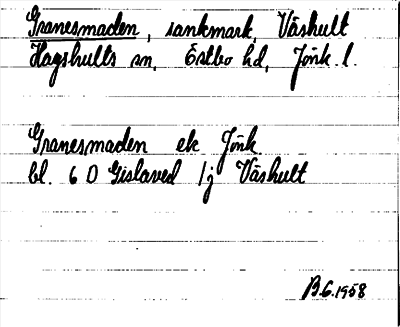 Granesmaden, sankmark, Våshult
Hagshults sn, Östbo hd, Jönk. l.
Granesmaden ek Jönk.
bl. 6 D Gislaved 1j Våshult
B.G. 1958